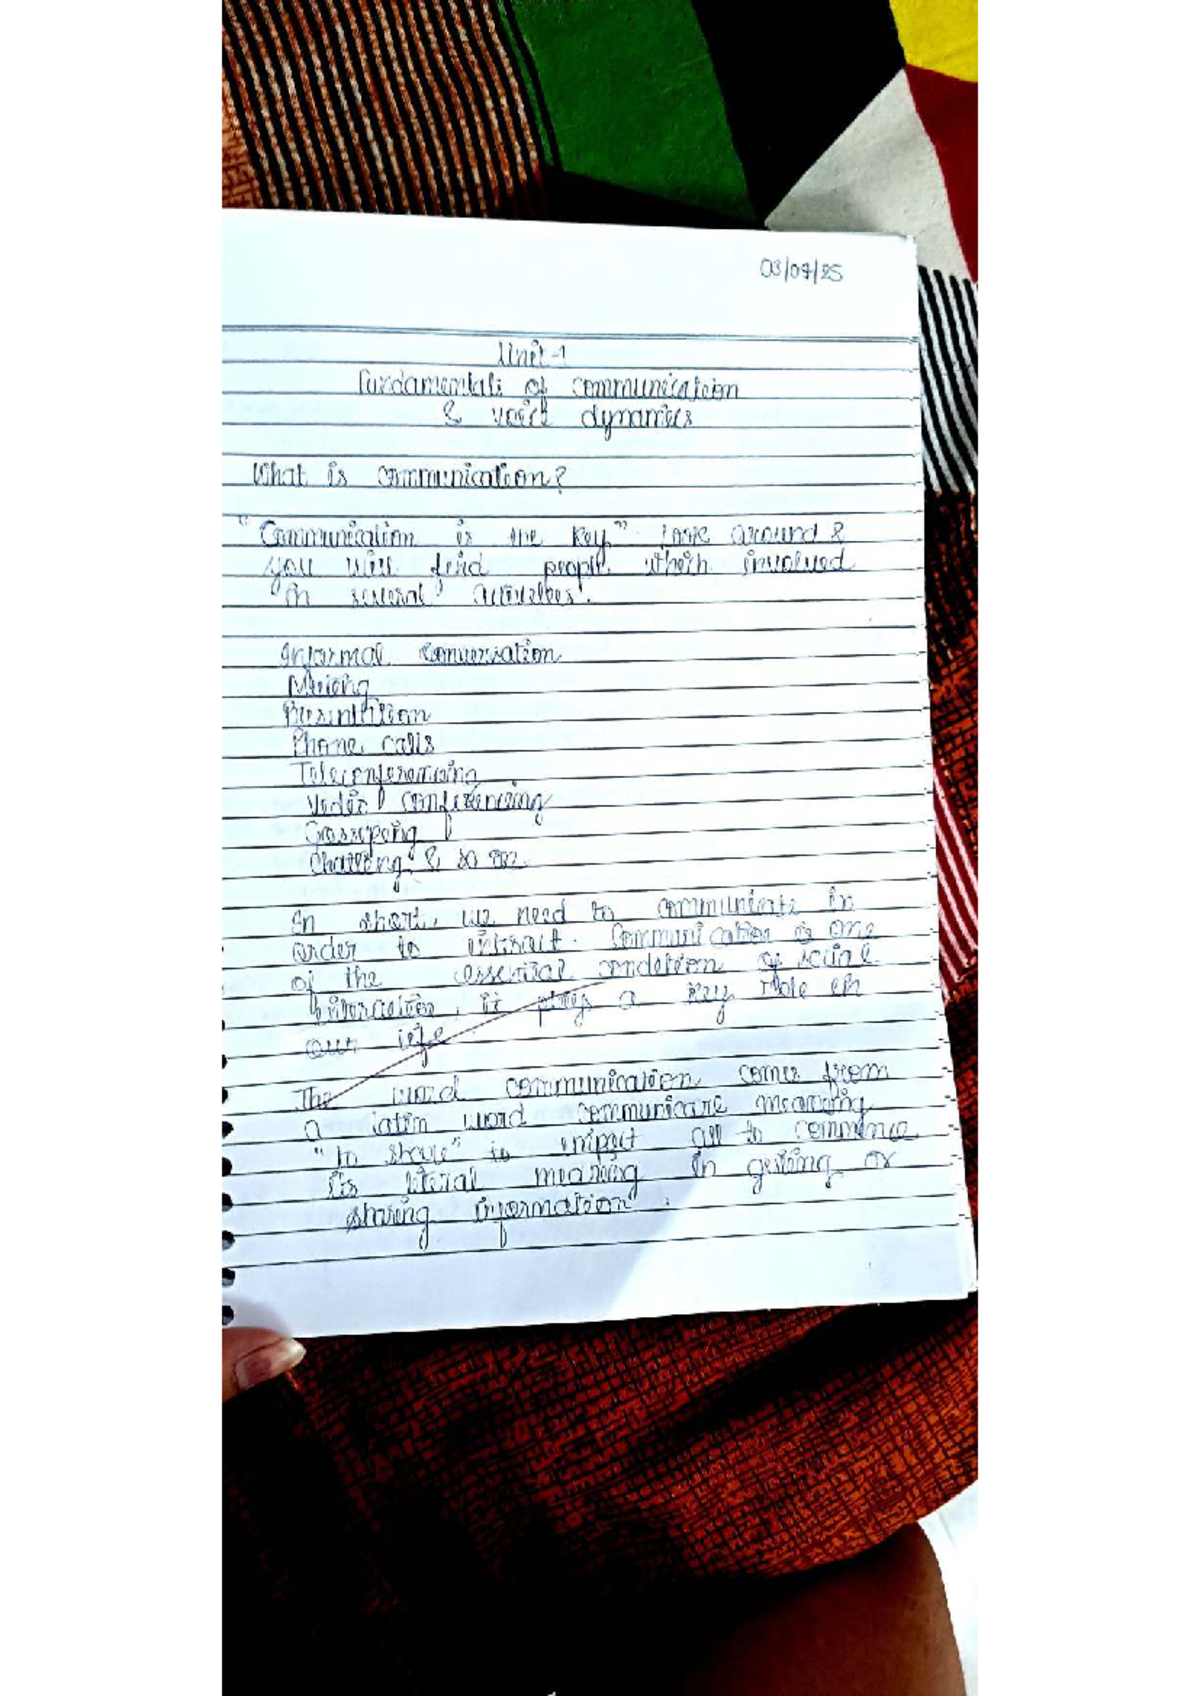 03/07/25
Unit-1
Fundamentals of communication
& voice dynamics
What is communication?
"Communication is the key" look around &
you will find people which involved
in several activities.
Informal conversation
Meeting
Presentation
Phone calls
Teleconferencing
Video conferencing
Gossiping
Chatting & so on.
In short, we need to communicate in
order to interact. Communication is one
of the essential condition of social
interaction, it plays a key role in
our life
The word communication comes from
a latin word communicare meaning
"to share" is impart all to
Its literal meaning in or
sharing information.